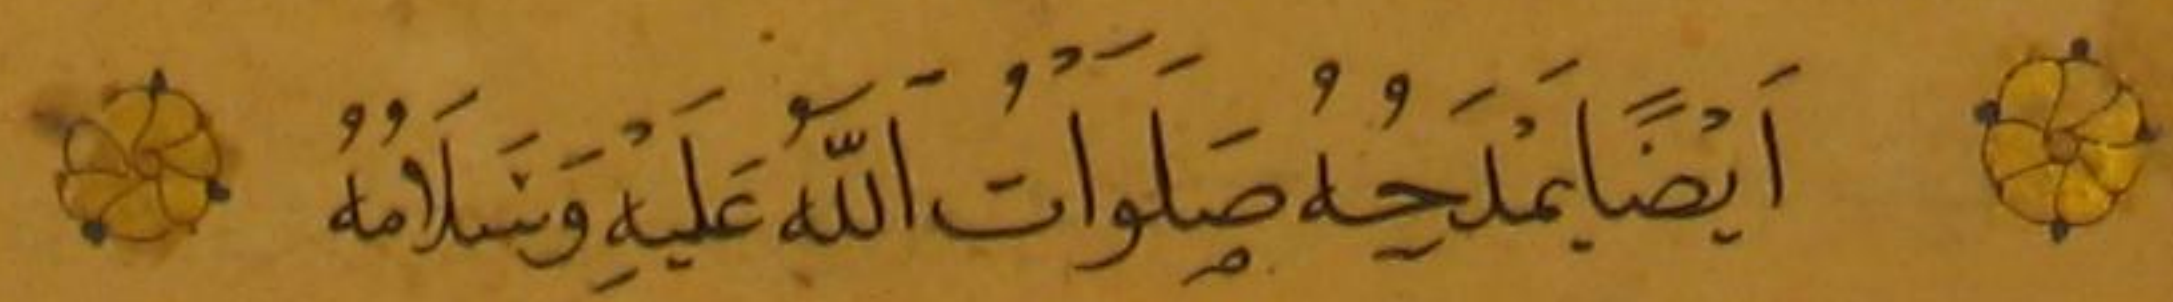 اَيْضًا يَمْدَحُهُ صَلَوَاتُ اللّٰهِ عَلَيْهِ وَسَلَامُهُ